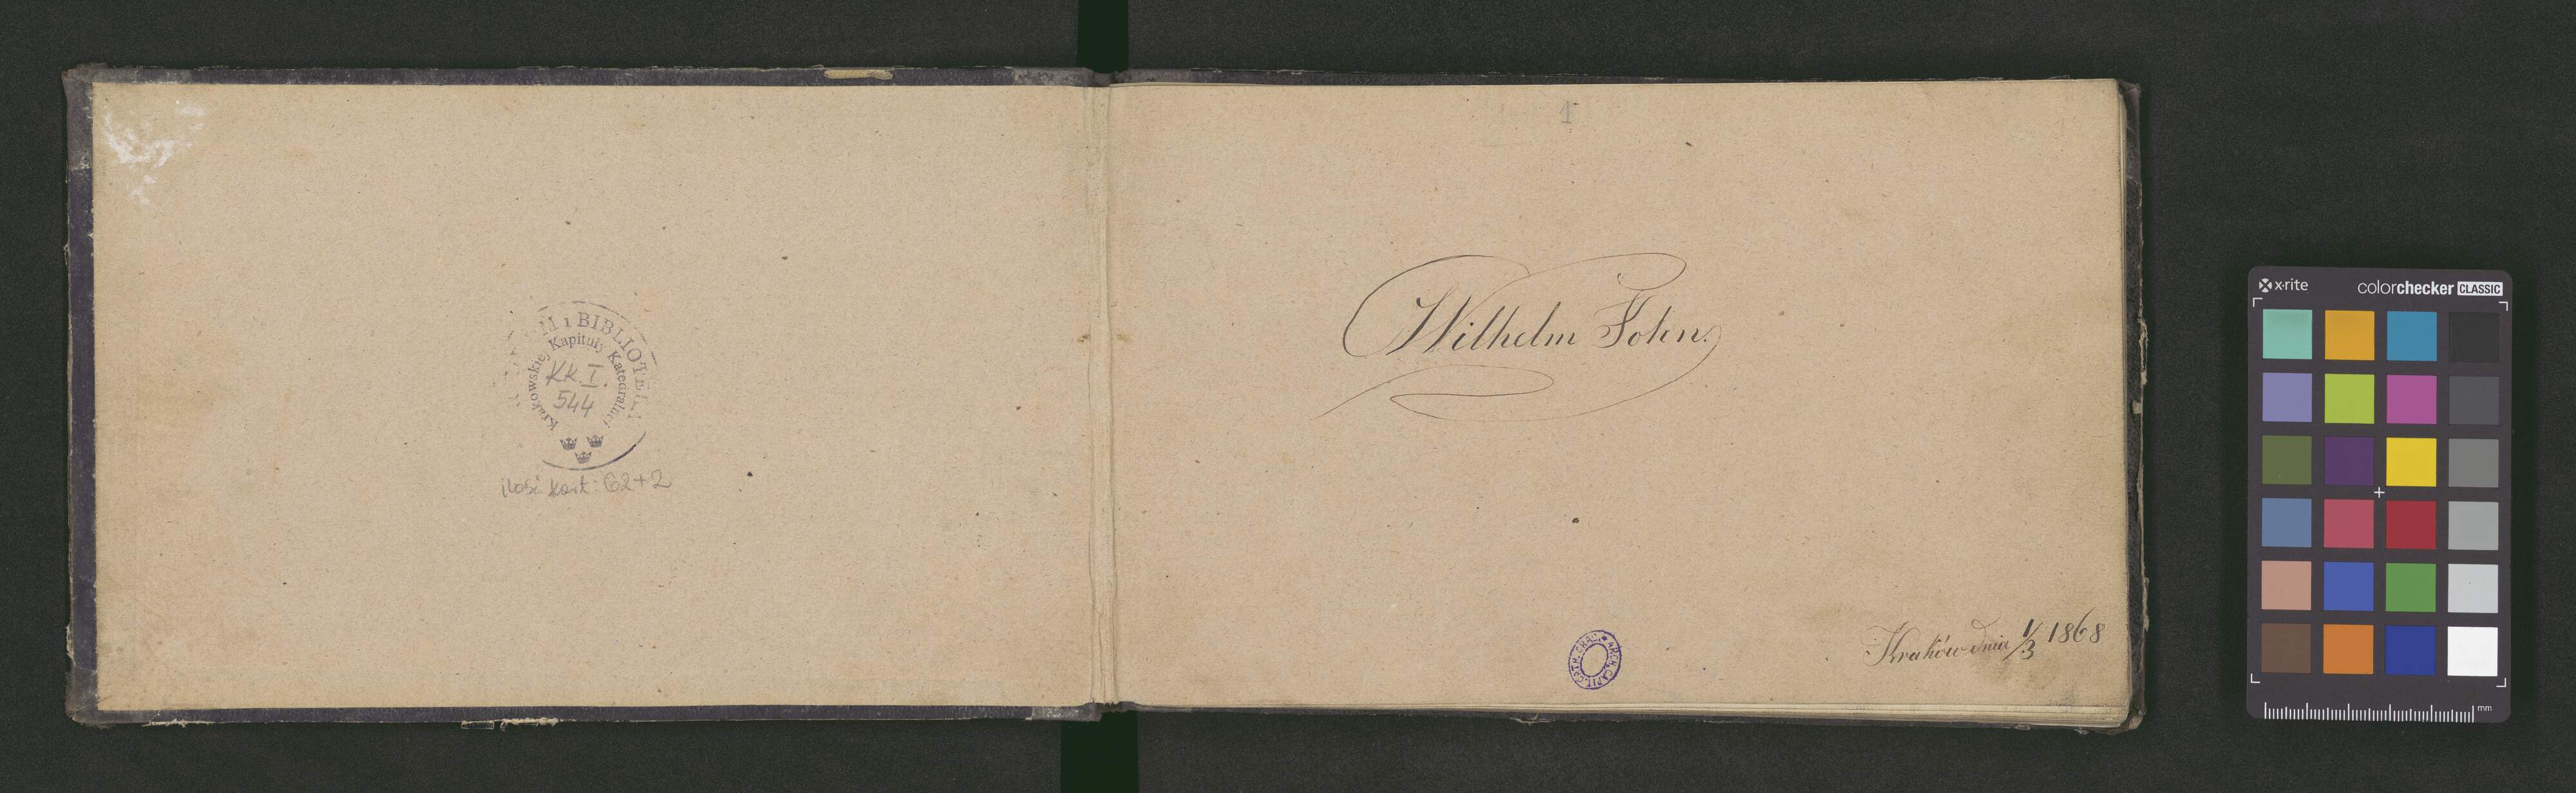 II i BIBLIOTE
Krakowskiej Kapituły Katedralnej
KK. I.
544
ilość kart: 62+2
1
Wilhelm Fohn.
ARCH. CAPIT. CATR. CRAC.
Kraków dnia 1/3 1868
x·rite
colorchecker CLASSIC
mm